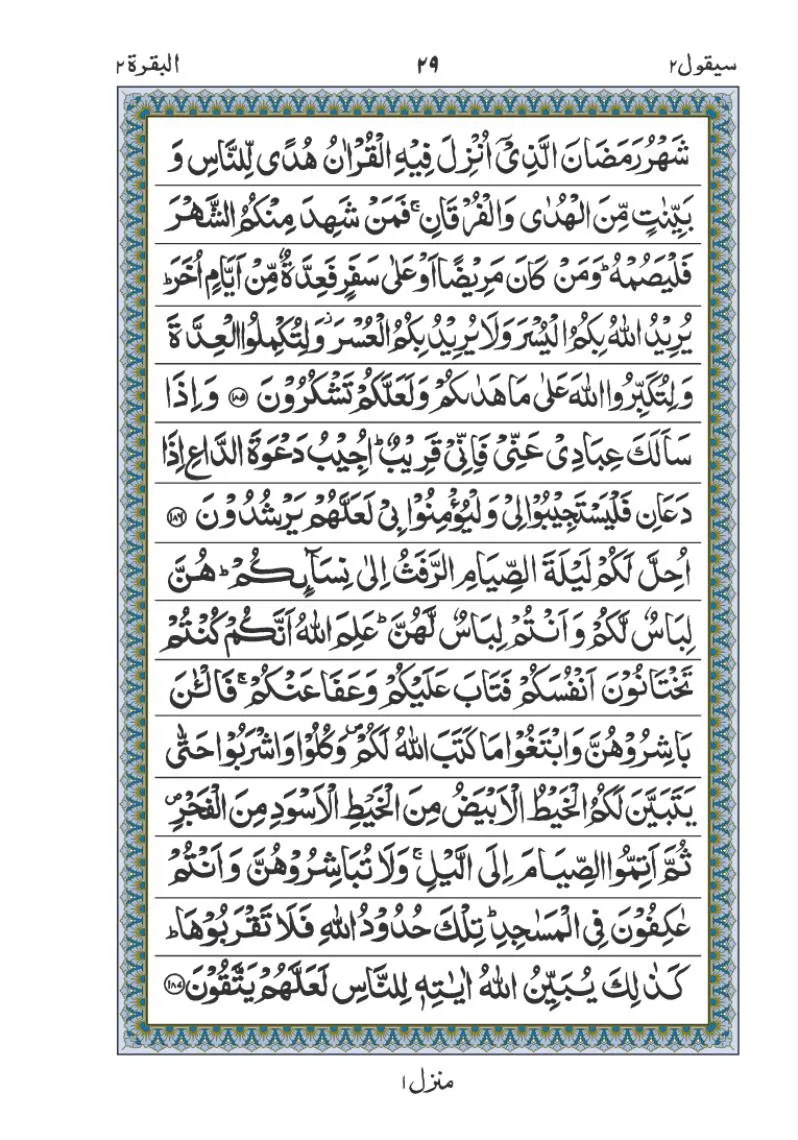 سيقول٢ ٢٩ البقرة٢
شَهْرُ رَمَضَانَ الَّذِیْۤ اُنْزِلَ فِیْهِ الْقُرْاٰنُ هُدًی لِّلنَّاسِ وَ
بَیِّنٰتٍ مِّنَ الْهُدٰی وَ الْفُرْقَانِ ۚ فَمَنْ شَهِدَ مِنْكُمُ الشَّهْرَ
فَلْیَصُمْهُ ؕ وَمَنْ كَانَ مَرِیْضًا اَوْ عَلٰی سَفَرٍ فَعِدَّةٌ مِّنْ اَیَّامٍ اُخَرَ ؕ
یُرِیْدُ اللّٰهُ بِكُمُ الْیُسْرَ وَلَا یُرِیْدُ بِكُمُ الْعُسْرَ ؗ وَلِتُكْمِلُوا الْعِدَّةَ
وَلِتُكَبِّرُوا اللّٰهَ عَلٰی مَا هَدٰىكُمْ وَلَعَلَّكُمْ تَشْكُرُوْنَ ﴿۱۸۵﴾ وَاِذَا
سَاَلَكَ عِبَادِیْ عَنِّیْ فَاِنِّیْ قَرِیْبٌ ؕ اُجِیْبُ دَعْوَةَ الدَّاعِ اِذَا
دَعَانِ فَلْیَسْتَجِیْبُوْا لِیْ وَلْیُؤْمِنُوْا بِیْ لَعَلَّهُمْ یَرْشُدُوْنَ ﴿۱۸۶﴾
اُحِلَّ لَكُمْ لَیْلَةَ الصِّیَامِ الرَّفَثُ اِلٰی نِسَآىِٕكُمْ ؕ هُنَّ
لِبَاسٌ لَّكُمْ وَ اَنْتُمْ لِبَاسٌ لَّهُنَّ ؕ عَلِمَ اللّٰهُ اَنَّكُمْ كُنْتُمْ
تَخْتَانُوْنَ اَنْفُسَكُمْ فَتَابَ عَلَیْكُمْ وَعَفَا عَنْكُمْ ۚ فَالْـٰٔنَ
بَاشِرُوْهُنَّ وَابْتَغُوْا مَا كَتَبَ اللّٰهُ لَكُمْ ۪ وَكُلُوْا وَاشْرَبُوْا حَتّٰی
یَتَبَیَّنَ لَكُمُ الْخَیْطُ الْاَبْیَضُ مِنَ الْخَیْطِ الْاَسْوَدِ مِنَ الْفَجْرِ ۪
ثُمَّ اَتِمُّوا الصِّیَامَ اِلَی الَّیْلِ ۚ وَلَا تُبَاشِرُوْهُنَّ وَاَنْتُمْ
عٰكِفُوْنَ فِی الْمَسٰجِدِ ؕ تِلْكَ حُدُوْدُ اللّٰهِ فَلَا تَقْرَبُوْهَا ؕ
كَذٰلِكَ یُبَیِّنُ اللّٰهُ اٰیٰتِهٖ لِلنَّاسِ لَعَلَّهُمْ یَتَّقُوْنَ ﴿۱۸۷﴾
منزل١